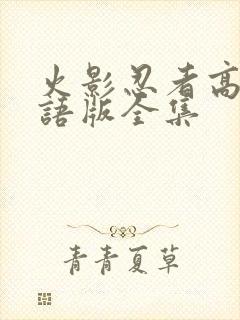 火影忍者高
語版全集
青青夏草